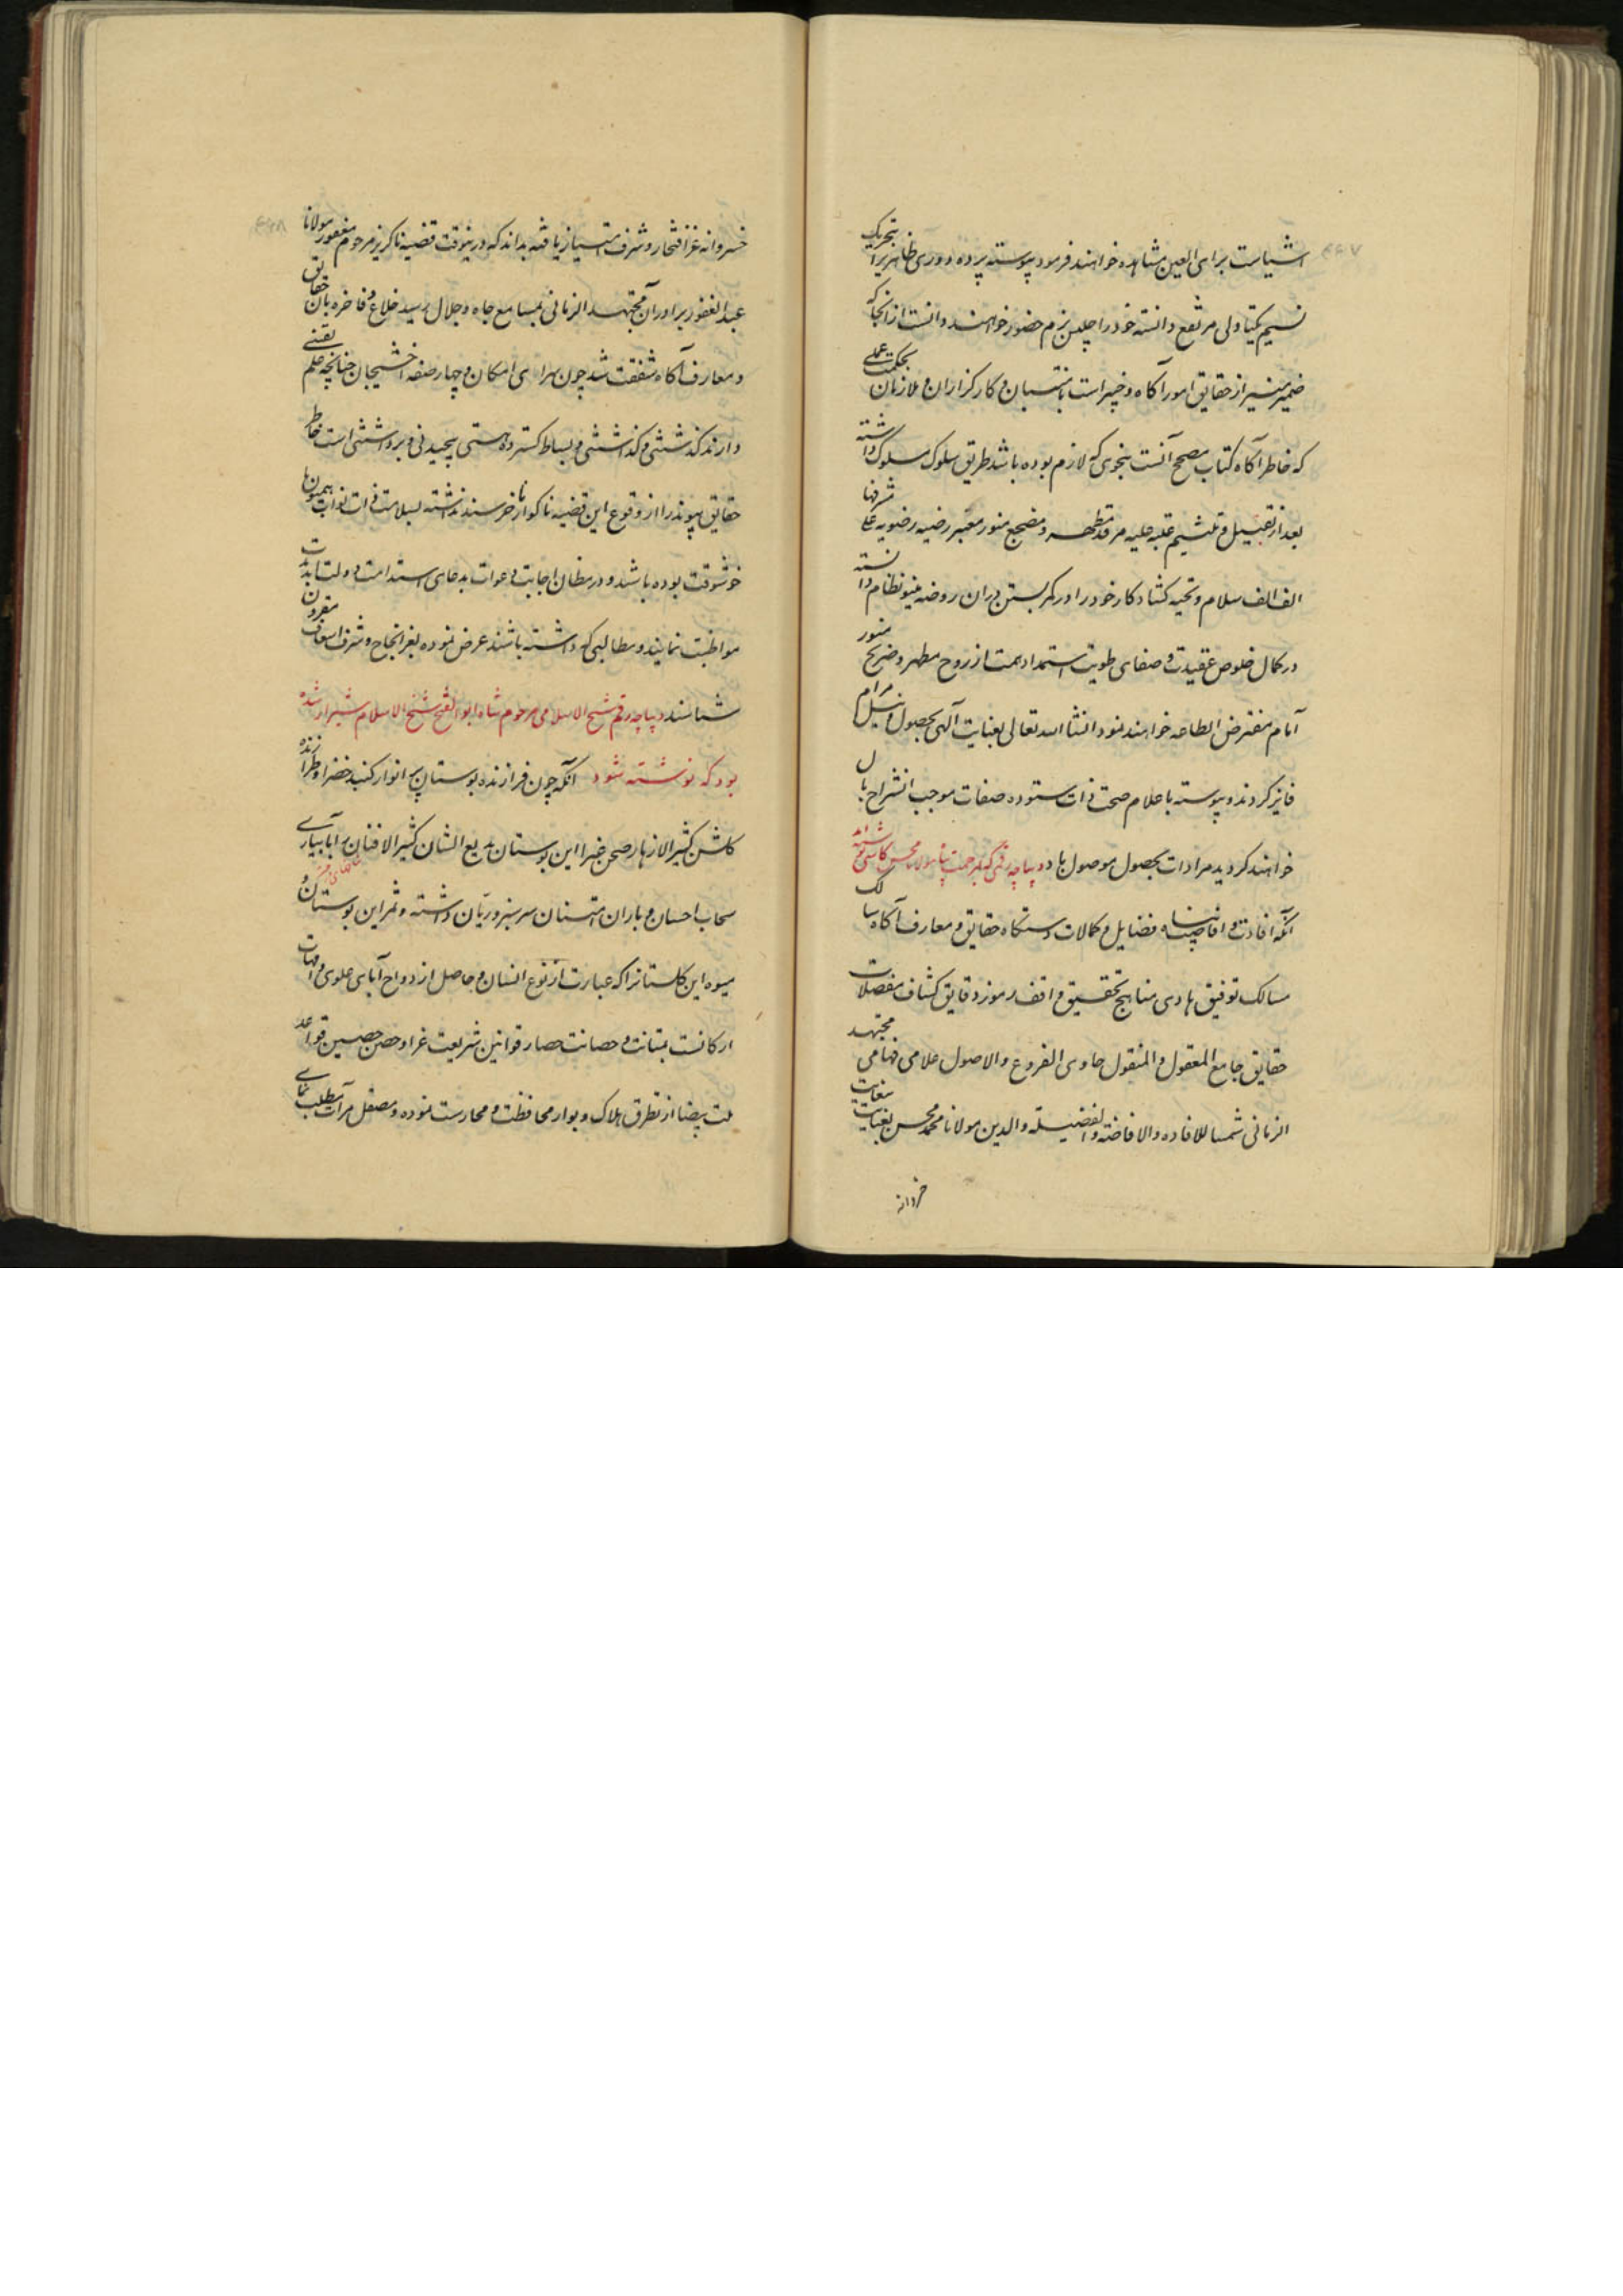 اشیاست برای العین مشاهده خواهند فرمود پیوسته پرده دوری ظاهر برا بتحریک
نسیم یکتا دلی مرتفع دانسته خود را جلیس بزم حضور خواهند دانست از آنجا که
ضمیر منیر از حقایق امور آگاه و خبیر است با منتسبان و کارگزاران و ملازمان بحکمت عملی
که خاطر آگاه کتاب مصحح آنست بنحوی که لازم بوده باشد طریق سلوک مسلوک داشته
بعد از تقبیل و تلثیم عتبه علیه مرقد مطهر و مضجع منور معتبر رضیه رضویه علی مشرفها
الف الف سلام و تحیه کشاد کار خود را در کمر بستن در آن روضه مینو نظام دانسته
در کمال خلوص عقیدت و صفای طویت استمداد همت از روح مطهر و ضریح منور
آنام مفترض الطاعه خواهند نمود انشا الله تعالی بعنایت آلهی بحصول و نیل مرام
فایز کردند و پیوسته با علام صحت ذات ستوده صفات موجب انشراح بال
خواهند کردید مرادات بحصول موصول باد دیباچه رقمی که بمرحمت پناه مولانا محسن کاشی نوشته اند
آنکه افادت و افاضت پناه فضایل و کمالات دستگاه حقایق و معارف آگاه سالک
مسالک توفیق هادی مناهج تحقیق واقف رموز دقایق کشاف مفصلات
حقایق جامع المعقول و المنقول حاوی الفروع والاصول علامی فهامی مجتهد
الزمانی شمسا للافاده والافاضة والفضیلة والدین مولانا محمد محسن بعنایت بغایت
خسروانه
خسروانه عز افتخار و شرف امتیاز یافته بداند که درینوقت قضیه ناگریز مرحوم مغفور مولانا
عبدالغفور برادر آن مجتهد الزمانی بمسامع جاه و جلال رسید خلاع فاخره بان حقایق
و معارف آگاه شفقت شد چون سرای امکان و چهار صفه اخشیجان چنانچه علم یقینی
دارند گذشتنی و گذاشتنی و بساط گسترده هستی پیچیدنی و برداشتنی است خاطر
حقایق پیوند را از وقوع این قضیه ناگوار ناخرسند نداشته بسلامت ذات نواب همیون ما
خوشوقت بوده باشند و در مظان اجابت دعوات بدعای استدامت دولت ابد مدت
مواظبت نمایند و مطالبی که داشته باشند عرض نموده بعز انجاح و شرف اسعاف مقرون
شناسند دیباچه رقم شیخ الاسلامی مرحوم شاه ابوالفتح شیخ الاسلام شیراز شده
بود که نوشته شود آنکه چون فرازنده بوستان پر انوار گنبد خضرا و طرازنده
گلشن کثیر الازهار صحن غبرا این بوستان بدیع الشان کثیر الافنان را بآبیاری
سحاب احسان و باران امتنان سرسبز و ریان داشته و ثمر این بوستان و
میوه این گلستانرا که عبارت از نوع انسان و حاصل ازدواج آبای علوی و امهات
ارکانست بمتانت و حصانت حصار قوانین شریعت غرا و حصن حصین قواعد
ملت بیضا از تطرق هلاک و بوار محافظت و محارست نموده و مصقل مرآت مطلب نمای